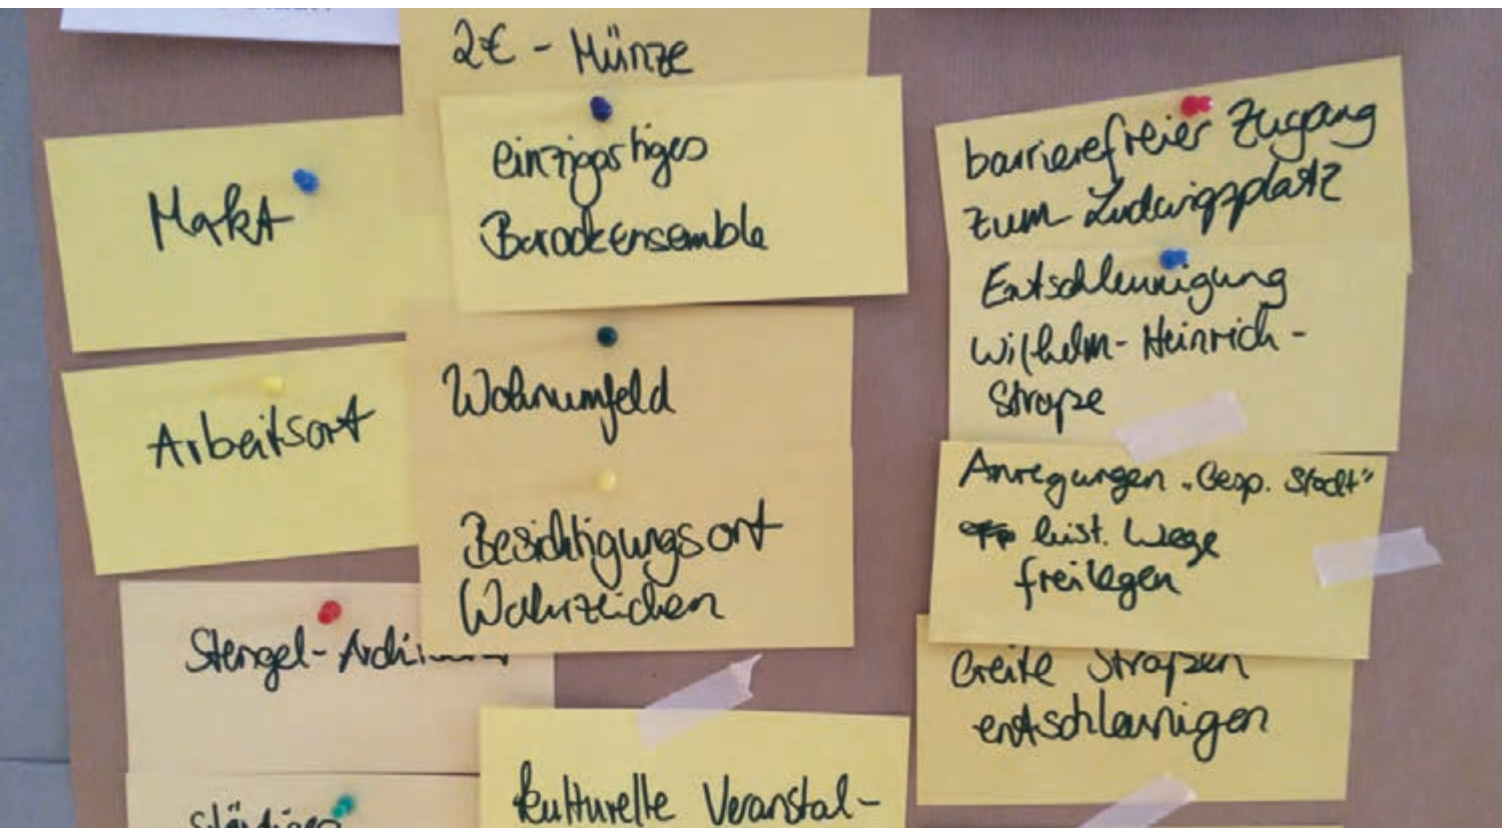 Makt
Arbeitsort
Stengel-
2€ - Münze
einzigartiges
Barockensemble
Wohnumfeld
Besichtigungsort
Wahrzeichen
kulturelle Veranstal-
barrierefreier Zugang
zum Ludwigsplatz
Entschleunigung
Wilhelm-Heinrich-
Straße
Anregungen „Gesp. Stadt"
hist. Wege
freilegen
breite Straßen
entschleunigen